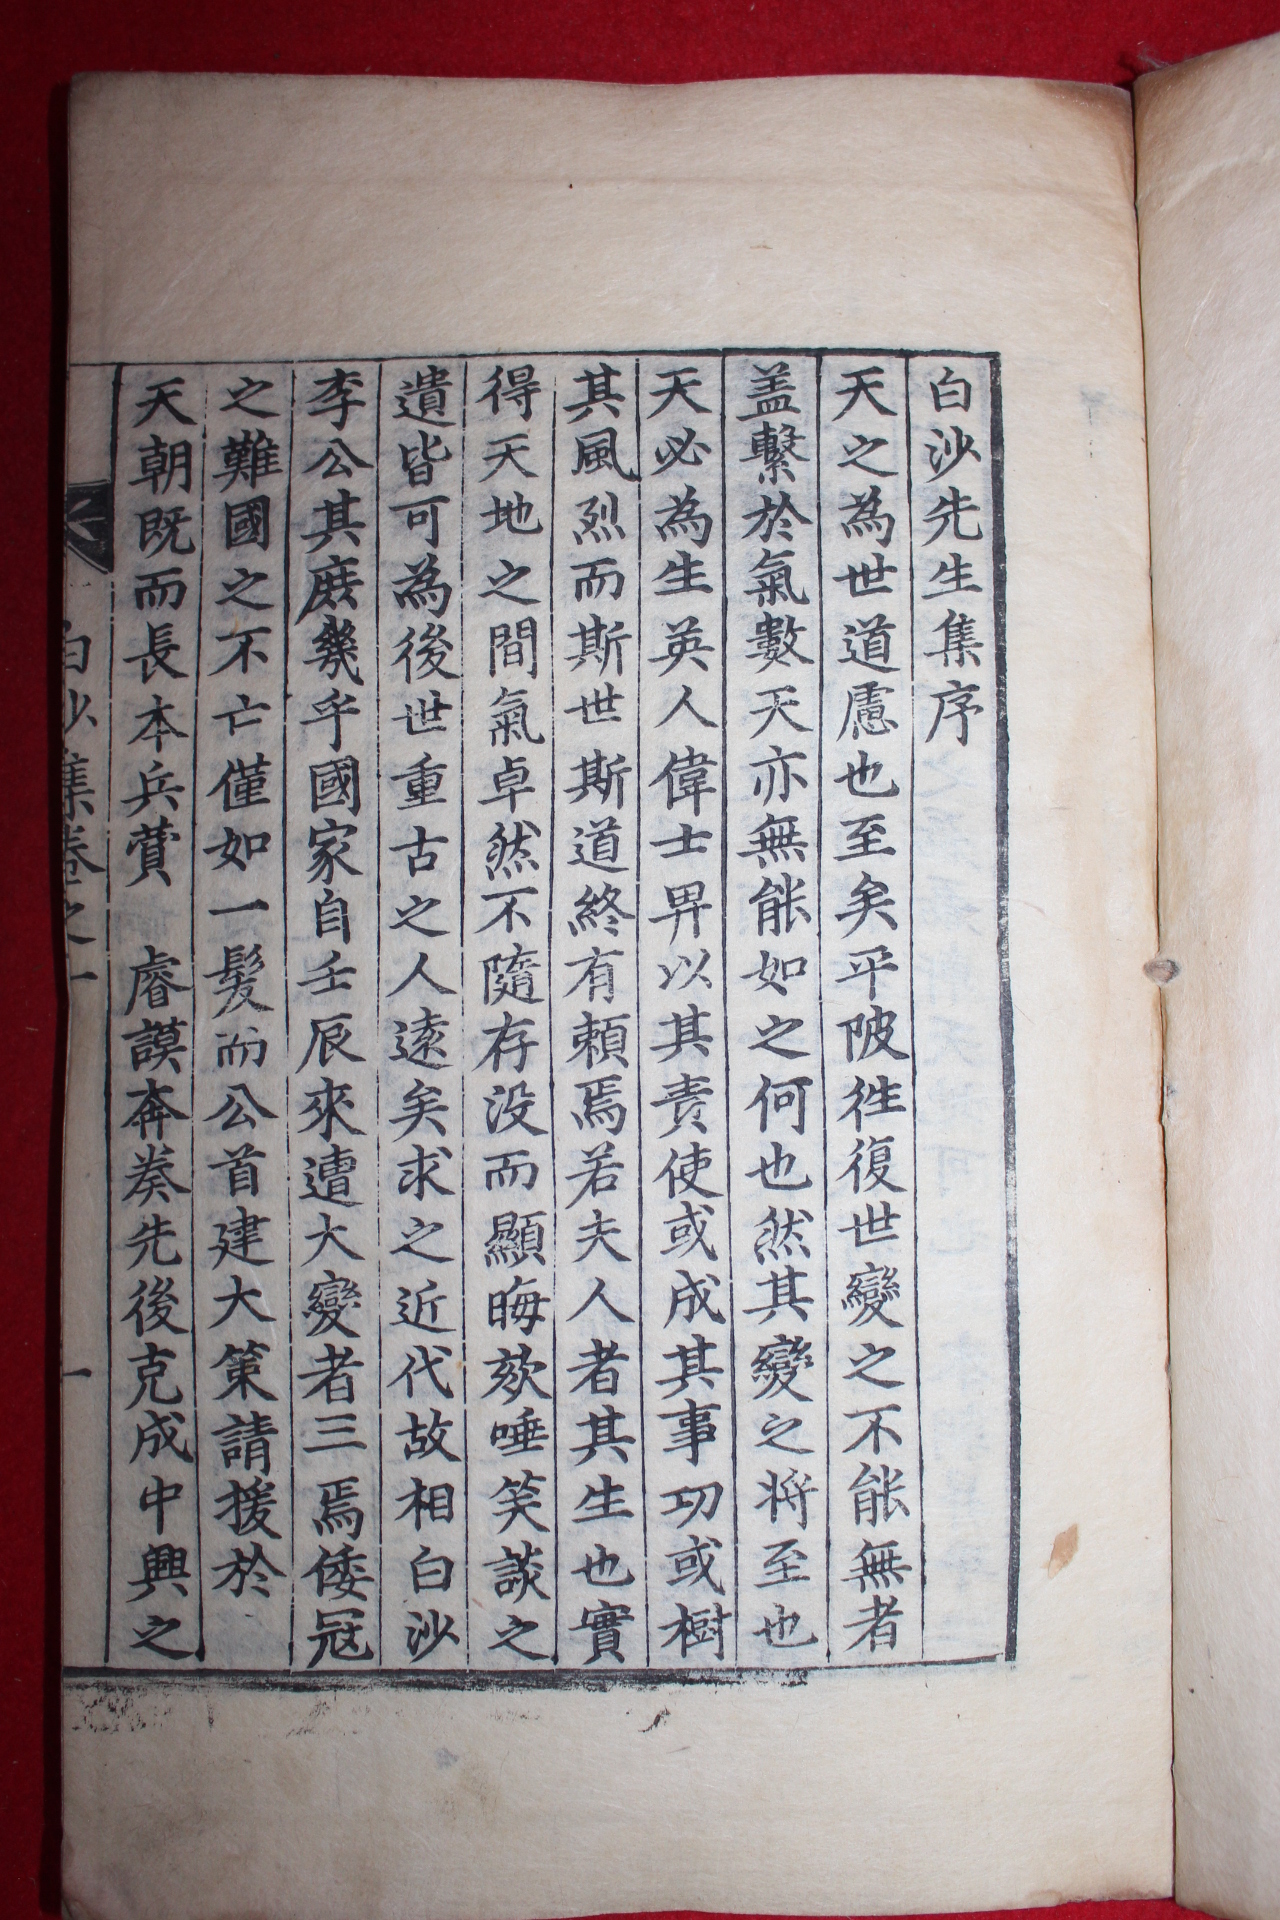 白沙先生集序
天之為世道慮也至矣平陂徃復世變之不能無者
盖繫於氣數天亦無能如之何也然其變之將至也
天必為生英人偉士畀以其責使或成其事功或樹
其風烈而斯世斯道終有頼焉若夫人者其生也實
得天地之間氣卓然不隨存没而顯晦欬唾笑談之
遺皆可為後世重古之人遠矣求之近代故相白沙
李公其庻幾乎國家自壬辰來遭大變者三焉倭冦
之難國之不亡僅如一髮而公首建大策請援於
天朝既而長本兵賛 睿謨奔奏先後克成中興之
白沙集卷之一 一